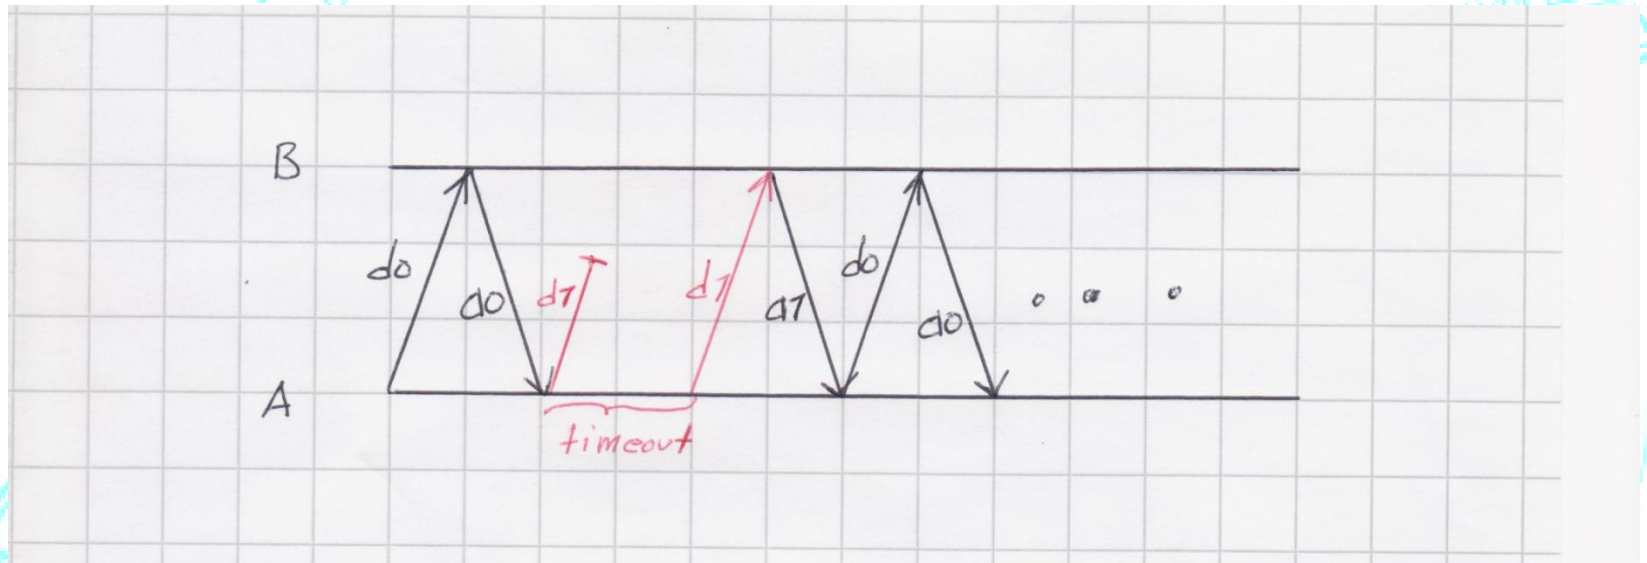 B
d0
a0
d1
d1
a1
d0
a0
A
timeout